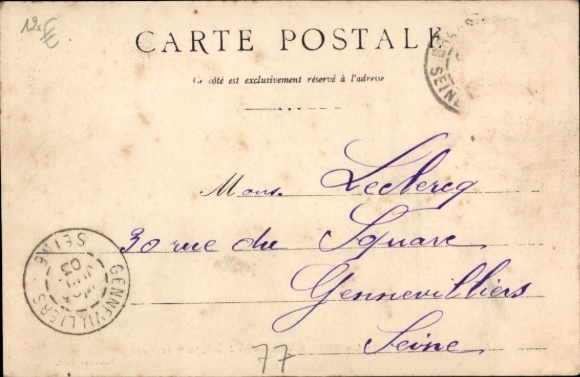 12 €
CARTE POSTALE
Ce côté est exclusivement réservé à l'adresse
SEINE
Mons. Leclercq
30 rue du Square
Gennevilliers
Seine
GENNEVILLIERS
SEINE
03
77